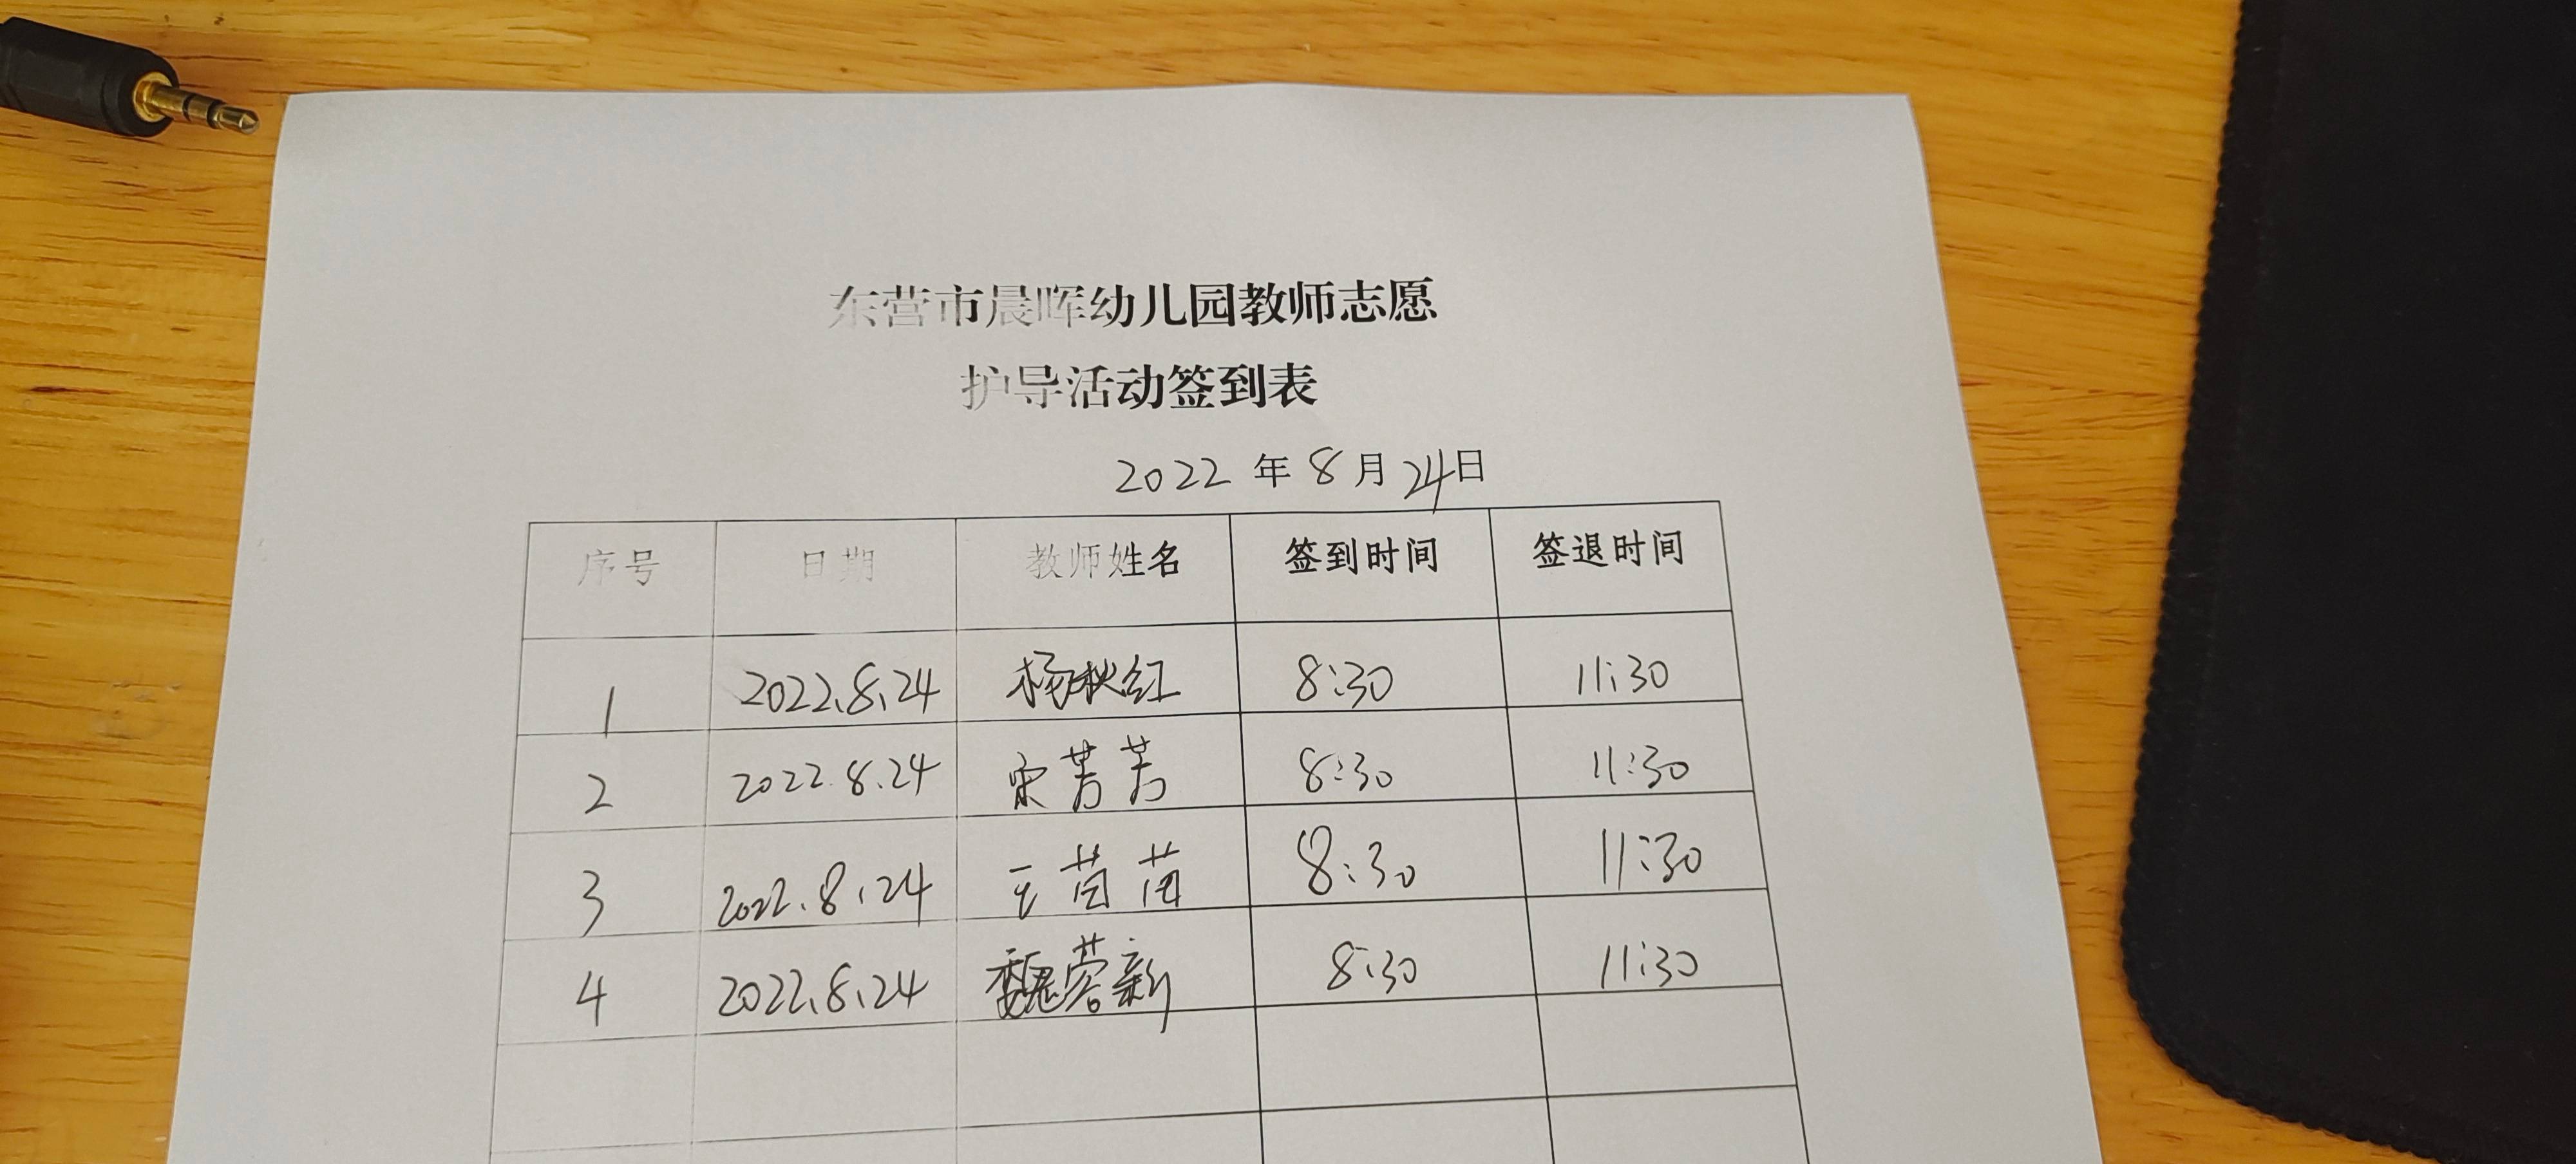 东营市晨晖幼儿园教师志愿
护导活动签到表
2022 年 8 月 24日
序号 日期 教师姓名 签到时间 签退时间
1 2022.8.24 杨秋红 8:30 11:30
2 2022.8.24 宋芳芳 8:30 11:30
3 2022.8.24 王苗苗 8:30 11:30
4 2022.8.24 魏蓉新 8:30 11:30